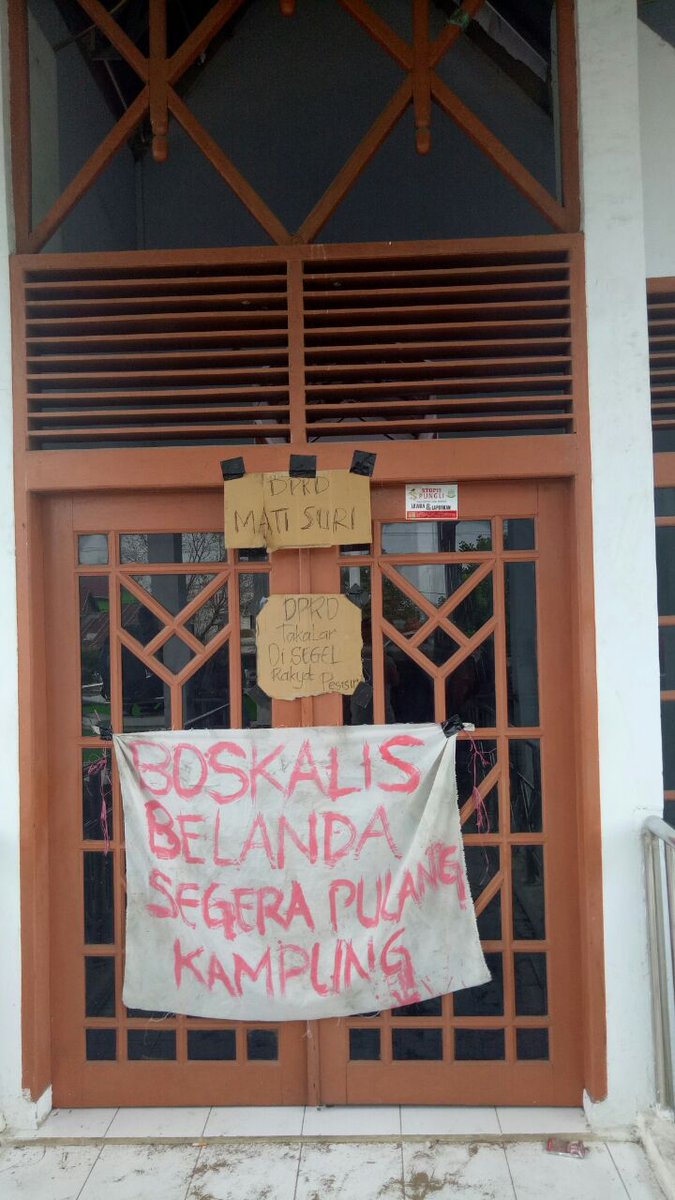 DPRD
MATI SURI
STOP!!!
PUNGLI
LAWAN & LAPORKAN
DPRD
TakaLar
Di SEGEL
Rakyat Pesisir
BOSKALIS
BELANDA
SEGERA PULANG
KAMPUNG!